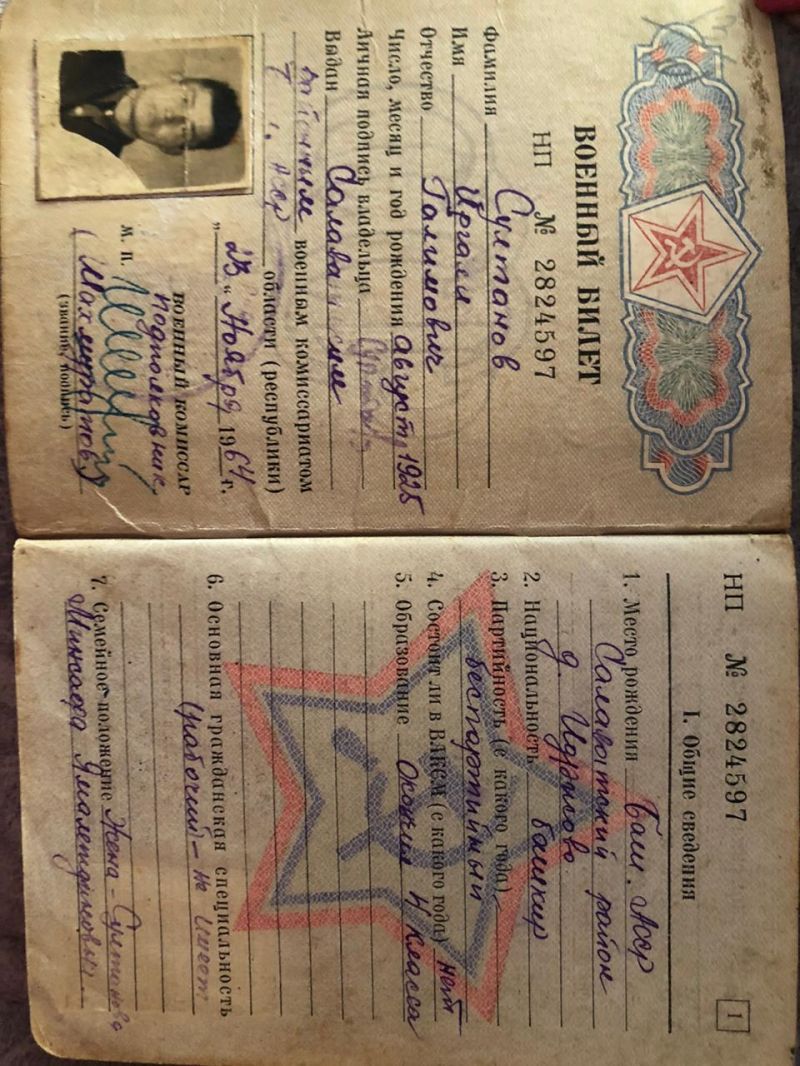 ВОЕННЫЙ БИЛЕТ
НП № 2824597
Фамилия Султанов
Имя Иргали
Отчество Галимович
Число, месяц и год рождения август 1925
Личная подпись владельца
Выдан Салаватским
районным военным комиссариатом
области (республики)
„23“ Ноября 1964 г.
ВОЕННЫЙ КОМИССАР
подполковник
м. п.
(Махмутов)
(звание, подпись)
НП № 2824597
1
I. Общие сведения
1. Место рождения Баш. АССР
Салаватский район
д. Идрисово
2. Национальность башкир
3. Партийность (с какого года)
беспартийный
4. Состоит ли в ВЛКСМ (с какого года) нет
5. Образование Окончил 4 класса
6. Основная гражданская специальность
(рабочий) – не имеет
7. Семейное положение Жена – Султанова